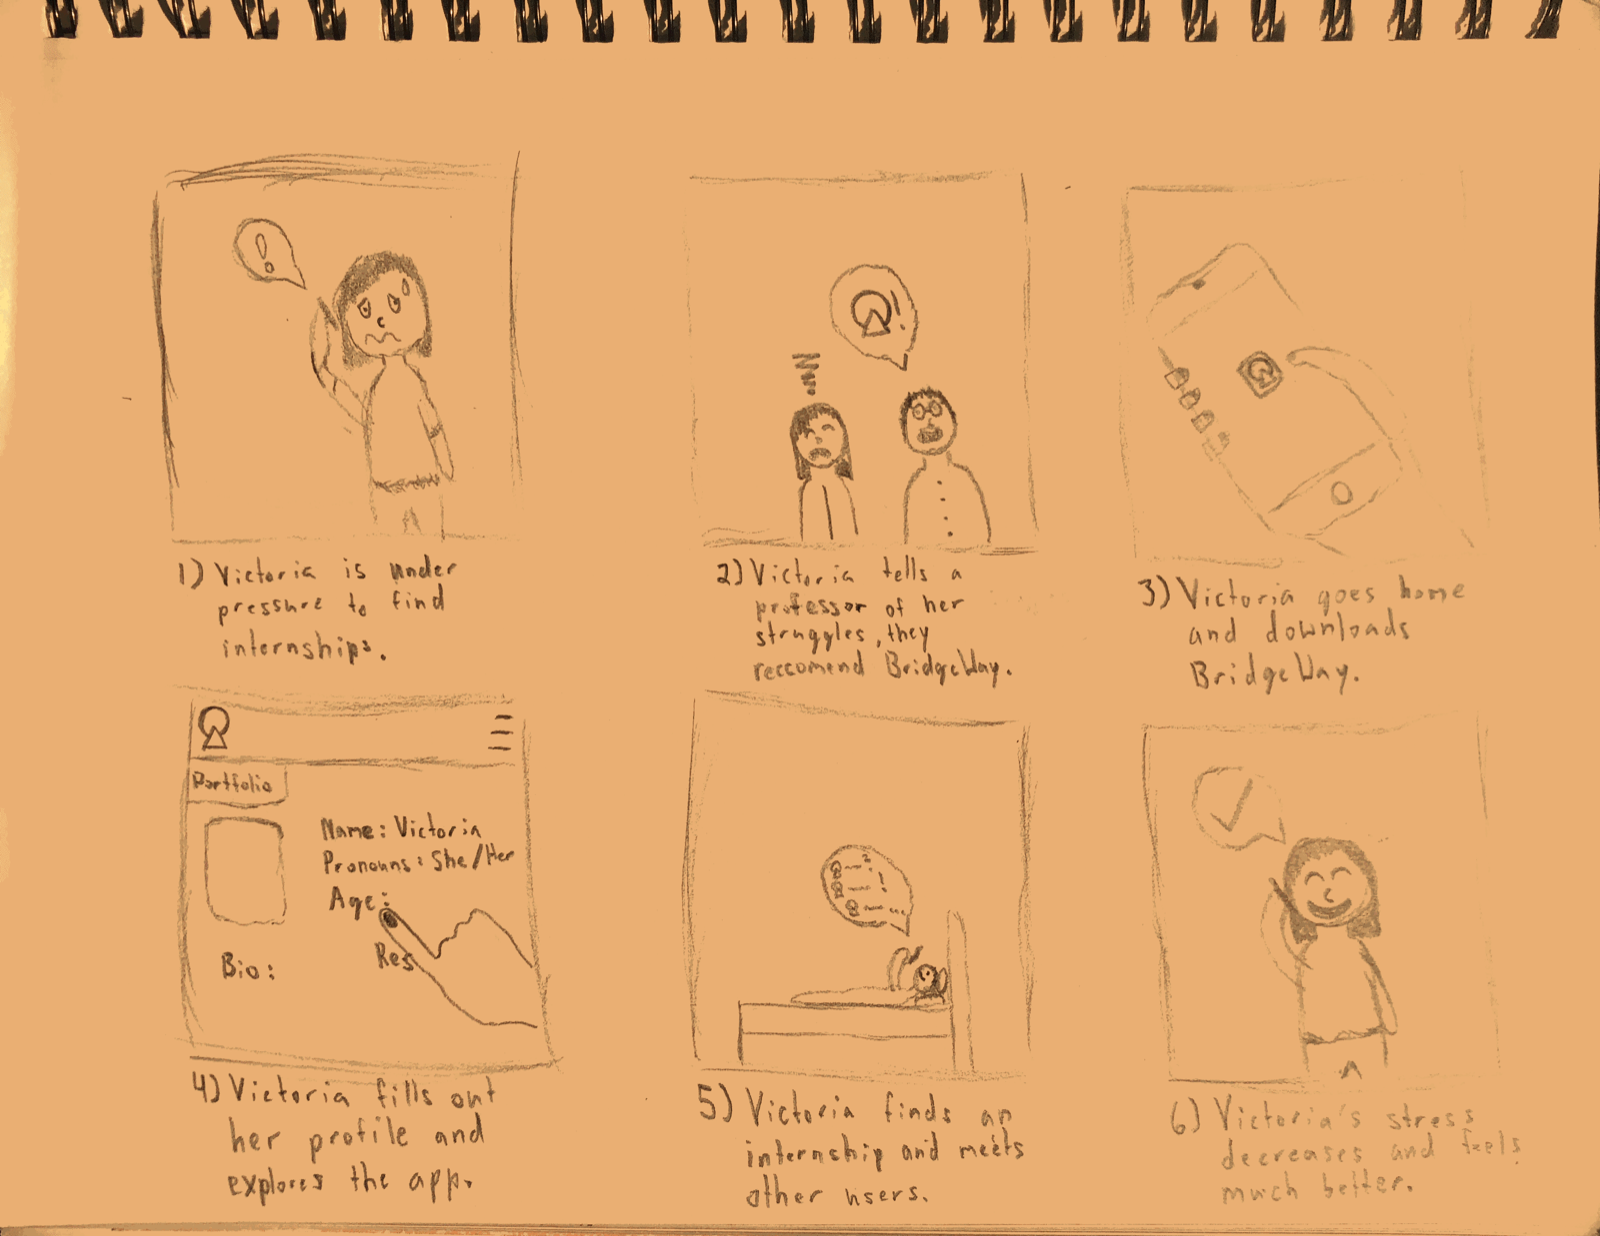 !
!
No...
1) Victoria is under
pressure to find
internships.
2) Victoria tells a
professor of her
struggles, they
reccomend BridgeWay.
3) Victoria goes home
and downloads
BridgeWay.
Portfolio
Name: Victoria
Pronouns: She/Her
Age:
Res
Bio:
4) Victoria fills out
her profile and
explores the app.
5) Victoria finds an
internship and meets
other users.
6) Victoria's stress
decreases and feels
much better.